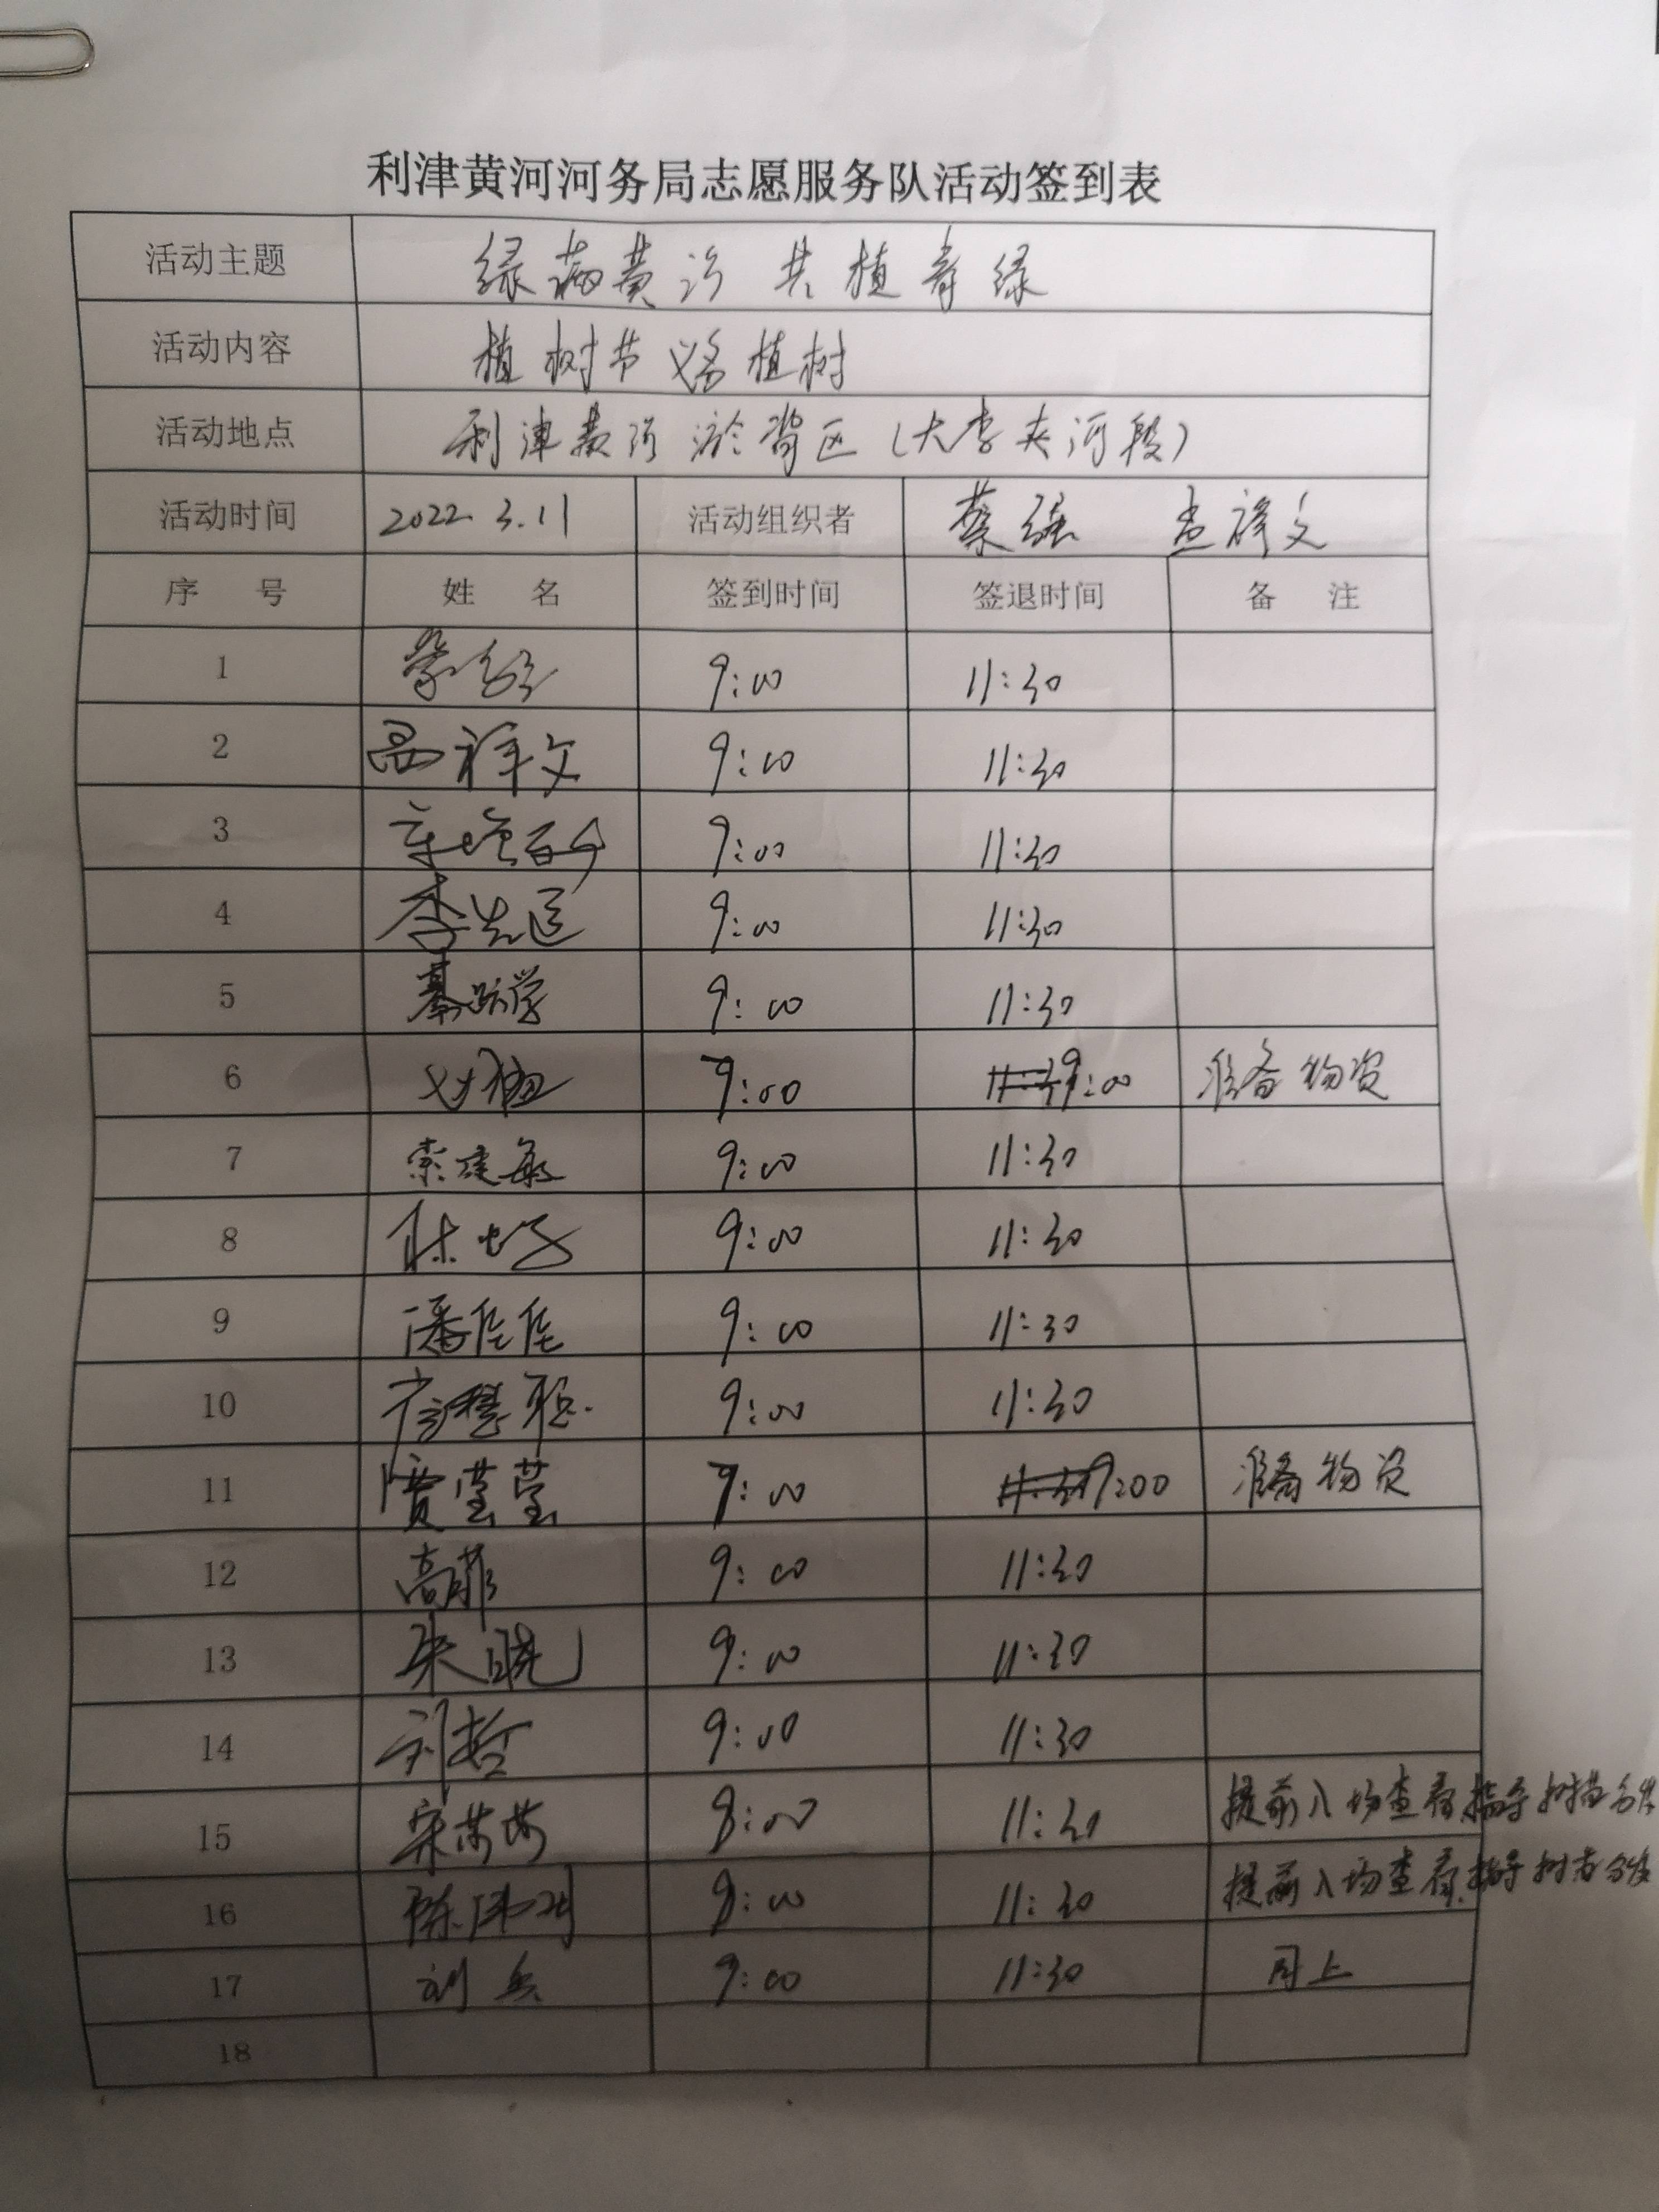 利津黄河河务局志愿服务队活动签到表
活动主题 绿满黄河 共植青绿
活动内容 植树节义务植树
活动地点 利津黄河淤背区(大李夹河段)
活动时间 2022.3.11 活动组织者 蔡强 孟祥文
序号 姓名 签到时间 签退时间 备注
1 9:00 11:30
2 孟祥文 9:00 11:30
3 9:00 11:30
4 9:00 11:30
5 綦跃学 9:00 11:30
6 7:00 9:00 准备物资
7 索建敏 9:00 11:30
8 9:00 11:30
9 潘佳佳 9:00 11:30
10 9:00 11:30
11 贾莹莹 7:00 9:00 准备物资
12 高菲 9:00 11:30
13 朱晓 9:00 11:30
14 刘哲 9:00 11:30
15 宋莎莎 8:00 11:30 提前入场查看指导树苗
16 8:00 11:30 提前入场查看指导树苗
17 刘兵 9:00 11:30 同上
18